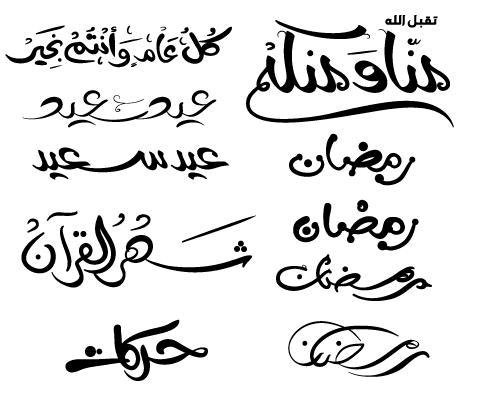 تقبل الله
منّا و منكم
كُلُ عَامٍ وَأَنْتُمْ بِخَيْرٌ
عيد سعيد
عيد سعيد
رمضان
رمضان
شهرُ القرآنُ
رمضان
حركات
رمضان